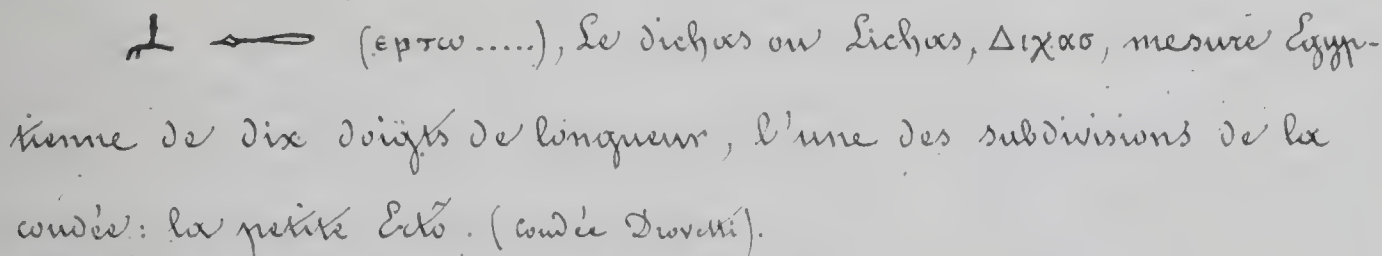 (ερτω.....), Le dichas ou Lichas, Διχασ, mesure Egyp-
tienne de dix doigts de longueur, l'une des subdivisions de la
coudée: la petite Ertô. (coudée Drovetti).